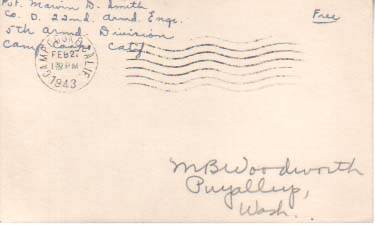 Pvt. Marvin D. Smith
Co. D. 22nd. Armd. Engr.
5th Armd. Division
Camp Cooke, Calif
Free
CAMP CALIF.
FEB 2
PM
1943
M B Woodworth
Puyallup,
Wash.